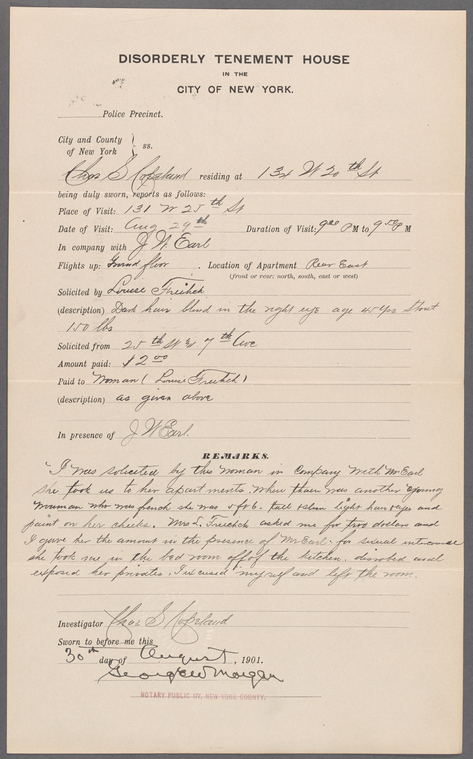 DISORDERLY TENEMENT HOUSE
IN THE
CITY OF NEW YORK.
Police Precinct.
City and County
of New York } ss.
Chas S Copeland residing at 134 W 20th St
being duly sworn, reports as follows:
Place of Visit: 131 W 25th St
Date of Visit: Aug 29th Duration of Visit: 9 00 P M to 9 50 P M
In company with J W Earl
Flights up: Ground floor. Location of Apartment Rear East
(front or rear: north, south, east or west)
Solicited by Louise
(description) Dark hair blind in the right eye age 45 yrs Stout
150 lbs
Solicited from 25th St & 7th Ave
Amount paid: $2 00
Paid to Woman (Louise
(description) as given above
In presence of J W Earl.
REMARKS.
"I was solicited by this woman in Company with Mr Earl
she took us to her apartments. When thair was another young
woman who was french she was 5 ft 6. tall slim light hair eyes and
paint on her cheeks. Mrs L. asked me for two dollars and
I gave her the amount in the presence of Mr Earl. for sexual
she took me in the bed room off of the kitchen. and
exposed her privates. I excused myself and left the room.
Investigator Chas S Copeland
Sworn to before me this
30th day of August, 1901.
George W Morgan
NOTARY PUBLIC NEW YORK COUNTY.